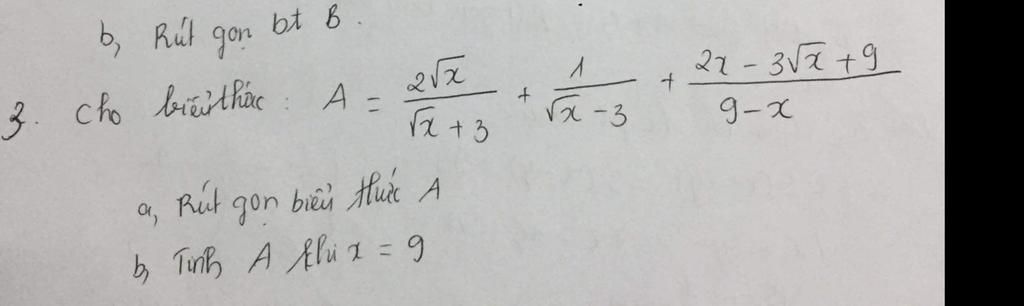 b, Rút gọn bt B.
3. Cho biểu thức: A = 2√x / (√x + 3) + 1 / (√x - 3) + (2x - 3√x + 9) / (9 - x)
a, Rút gọn biểu thức A
b, Tính A khi x = 9